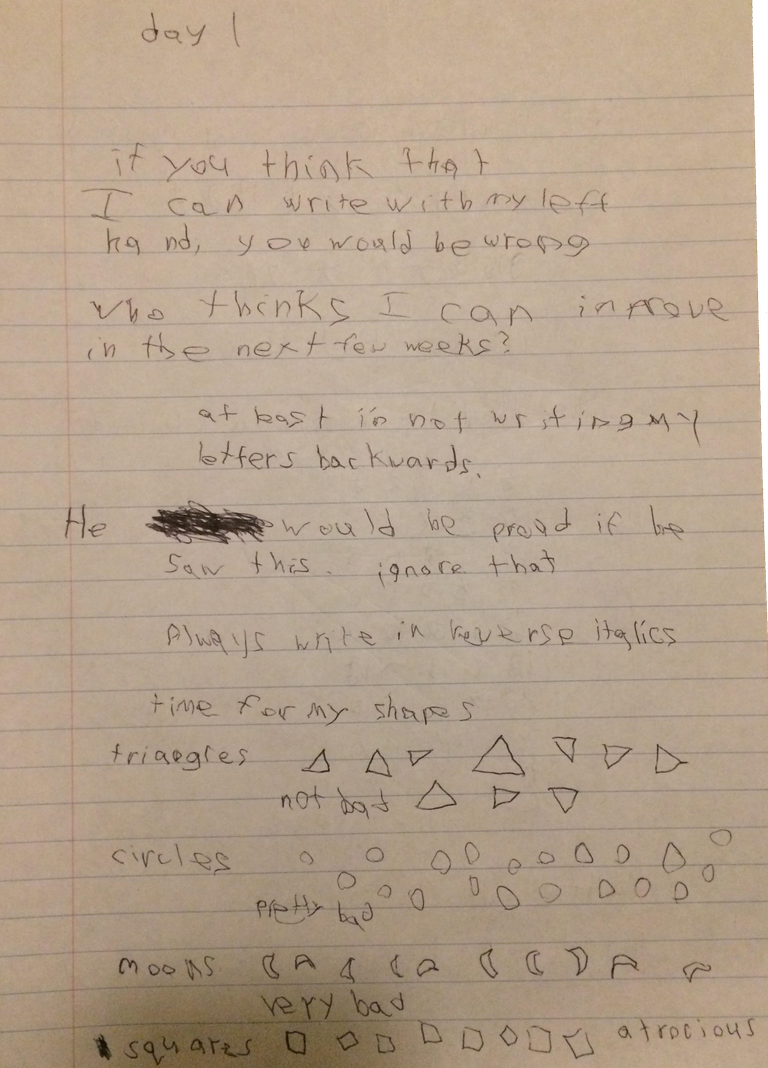 day 1
if you think that
I can write with my left
hand, you would be wrong
who thinks I can improve
in the next few weeks?
at least i'm not writing my
letters backwards.
He would be proud if he
saw this. ignore that
Always write in reverse italics
time for my shapes
triaegles
not bad
circles
pretty bad
moons
very bad
squares atrocious